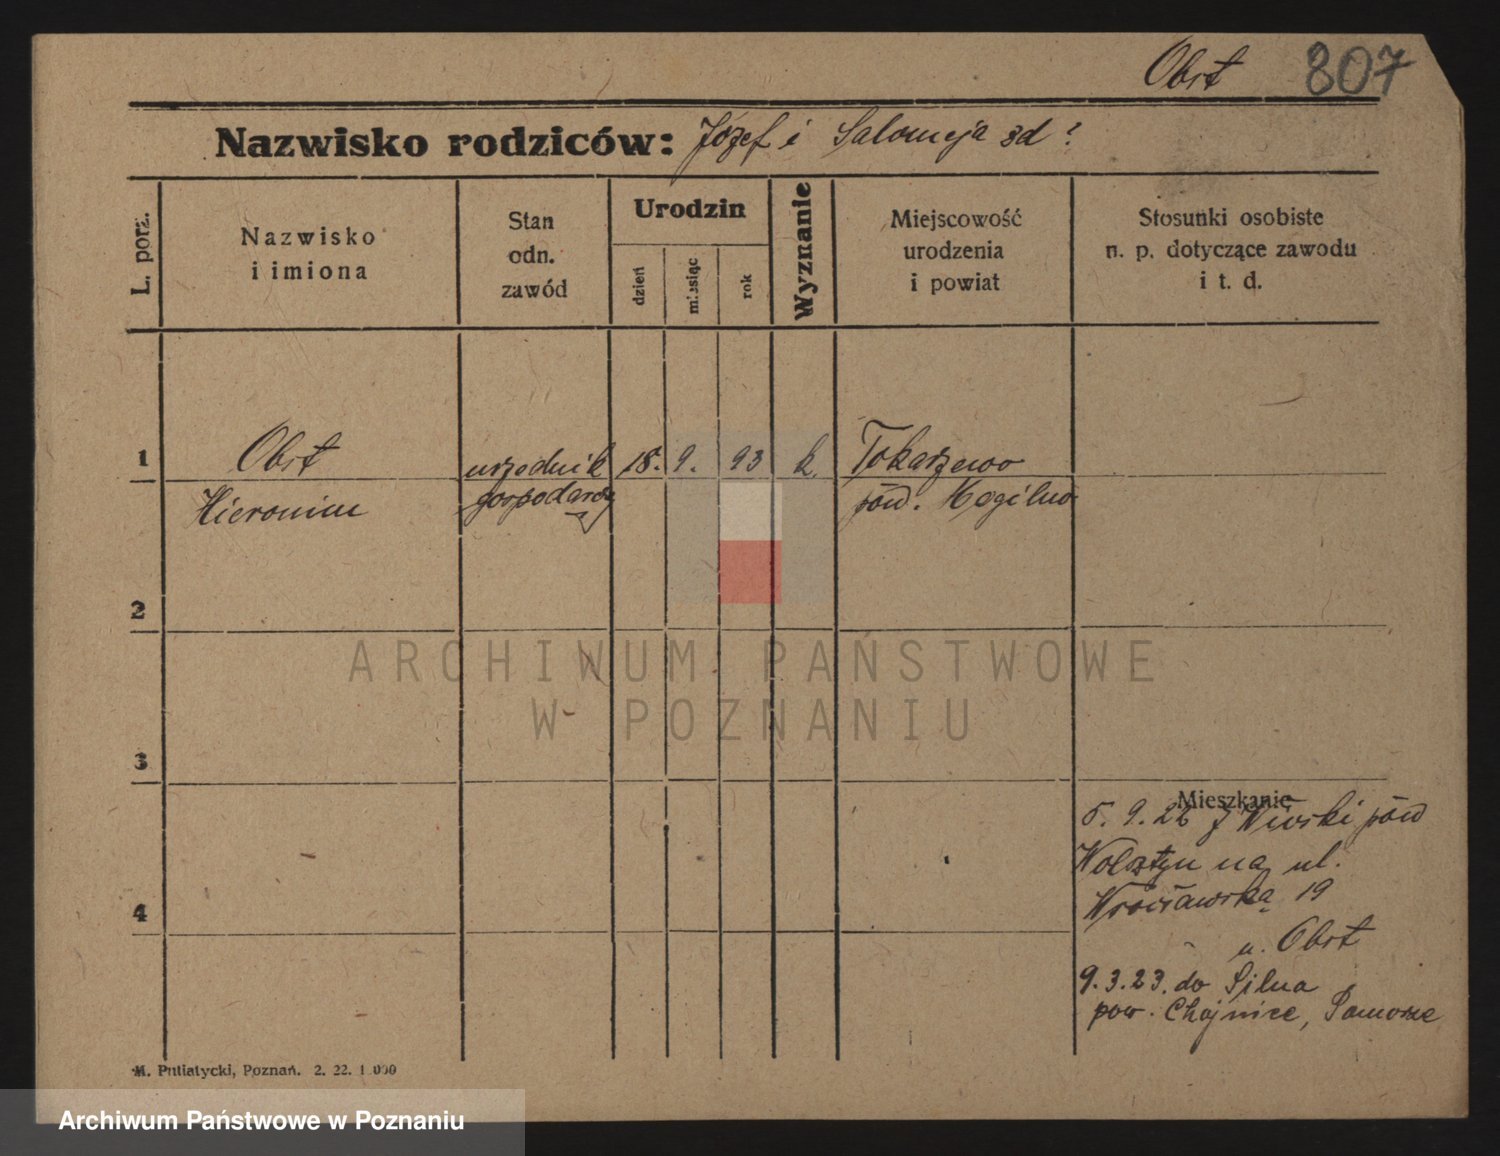 Obst 807
Nazwisko rodziców: Józef i Salomeja zd ?
L. porz.
Nazwisko
i imiona
Stan
odn.
zawód
Urodzin
dzień
miesiąc
rok
Wyznanie
Miejscowość
urodzenia
i powiat
Stosunki osobiste
n. p. dotyczące zawodu
i t. d.
1 Obst urzędnik 18. 9. 93 k. Tokarzewo
Hieronim gospodarczy pow. Mogilno
2
ARCHIWUM PAŃSTWOWE
W POZNANIU
3
Mieszkanie
5. 9. 22 z pow
Wolsztyn na ul.
Wrocławską 19
u. Obst
4
9. 3. 23. do Silna
pow. Chojnice, Pomorze
M. Putiatycki, Poznań. 2. 22. 1 000
Archiwum Państwowe w Poznaniu